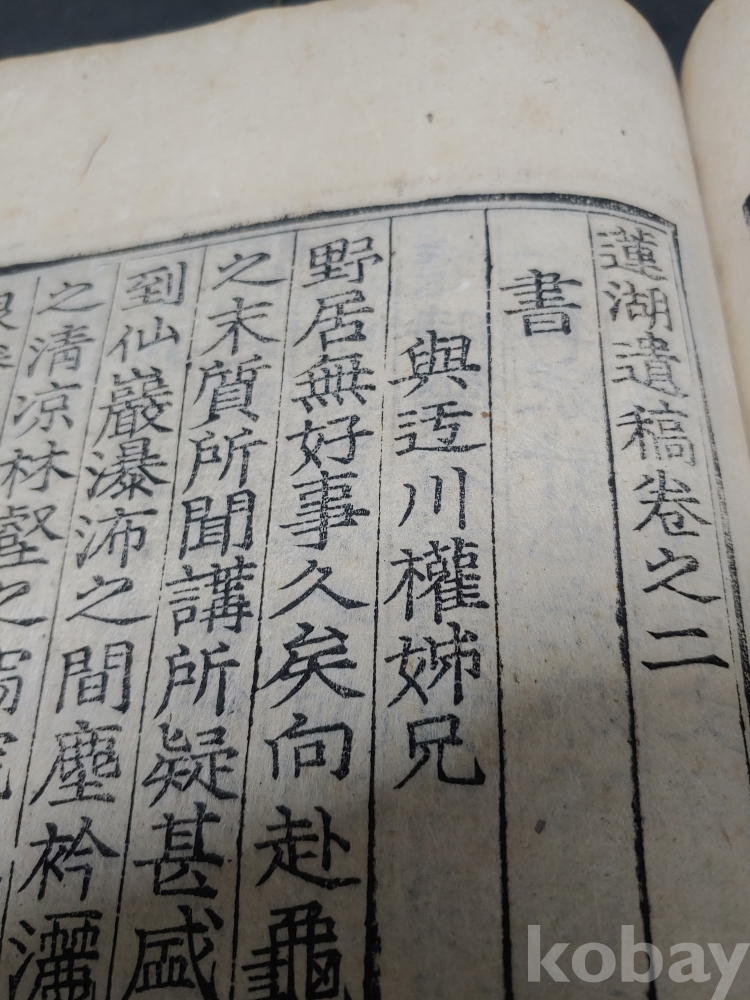 蓮湖遺稿卷之二
書
與迃川權姊兄
野居無好事久矣向赴龜
之末質所聞講所疑甚盛
到仙巖瀑沛之間塵衿灑
之清凉林壑之
kobay